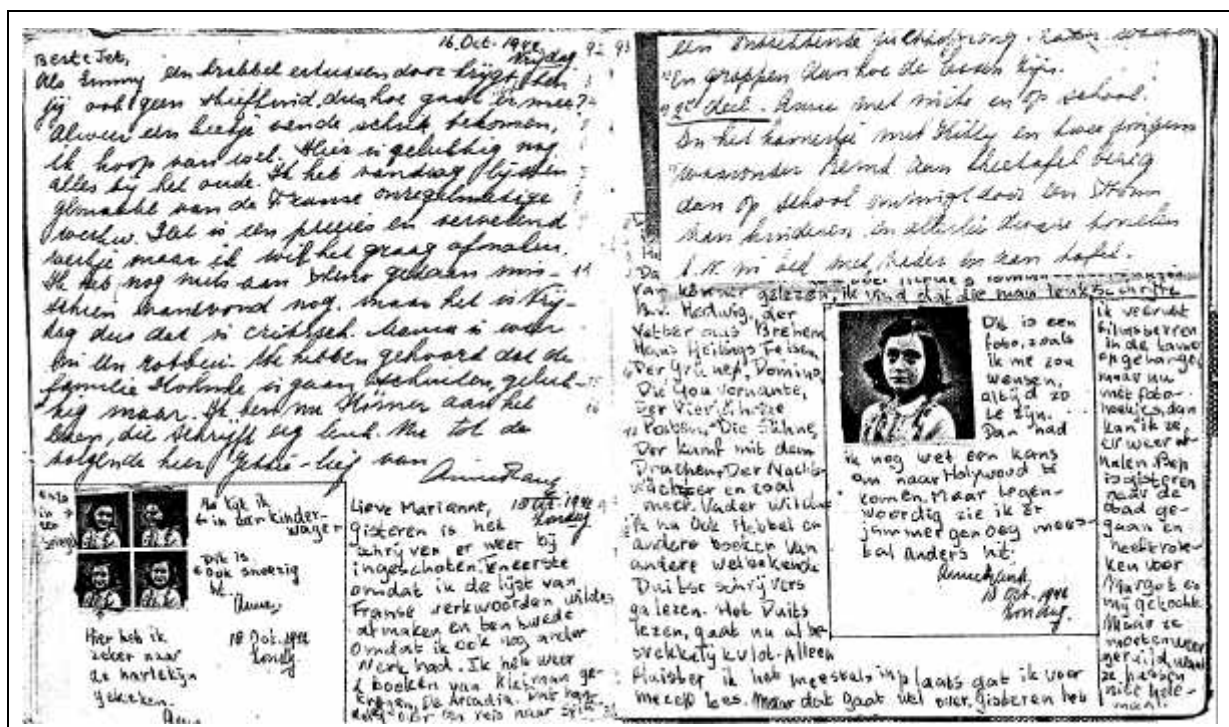 16. Oct. 1942
Vrijdag
92 93
Beste Jet,
Als Emmy een krabbel ertussen door krijgt, ben
jij ook geen stiefkind, dus hoe gaat er mee?
Alweer een beetje van de schrik bekomen,
ik hoop van wel. Hier is gelukkig nog
alles bij het oude. Ik heb vandaag lijsten
gemaakt van de Franse onregelmatige
werkw. Dat is een precies en vervelend
werkje maar ik wil het graag afmaken.
Ik heb nog niets aan steno gedaan mis-
schien vanavond nog. maar het is Vrij-
dag dus dat is critisch. Mama is weer
We hebben gehoord dat de
familie is gaan geluk-
kig maar. Ik ben nu Körner aan het
lezen, die schrijft erg leuk. Nu tot de
volgende keer van
Anne Frank
in
Nu kijk ik
in der kinder-
wager
Dit is
ook snoezig
Anne
Hier heb ik
zeker naar
de harlekijn
gekeken.
Anne
18 Oct. 1942
Zondag
Lieve Marianne,
18 Oct. 1942
Zondag
gisteren is het
schrijven er weer bij
ingeschoten. Eneerste
omdat ik de lijst van
Franse werkwoorden wilde
afmaken en ten twede
omdat ik ook nog ander
werk had. Ik heb weer
2 boeken van Kleiman ge-
kregen, De Arcadia.
over een reis naar
een
En grappen dan hoe de
2e deel. Anne met en op school.
In het kamertje met Kitty en twee jongens
waaronder Bernd aan theetafel bezig
dan op school omringd door een stroom
van kinderen en allerlei dwaze tonelen
b.v. in bed met, Vader en aan tafel.
van Körner gelezen, ik vind dat die man leuk schrijft
B.v. Hedwig, der
Vetter aus Brehem
Hans Heilings Felsen
Der Grüne, Domino,
Die Gouvernante,
Der Vierjährige
Posten, Die Sühne,
Der Kamf mit dem
Drachen, Der Nacht-
wächter en zoal
meer. Vader wil dat
ik nu ook Hebbel en
andere boeken van
andere welbekende
Duitse schrijvers
ga lezen. Het Duits
lezen, gaat nu al be-
trekkelijk vlot. Alleen
fluister ik het meestal in plaats dat ik voor
mezelf lees. Maar dat gaat wel over, gisteren heb
Dit is een
foto, zoals
ik me zou
wensen,
altijd zo
te zijn.
Dan had
ik nog wel een kans
om naar Holywood te
komen. Maar tegen-
woordig zie ik er
jammer genoeg mees-
tal anders uit.
Anne Frank
18 Oct. 1942
Zondag.
ik veerukt
filmsterren
in de kamer
opgehangen
maar nu
met foto-
hoekjes, dan
kan ik ze
er weer af-
halen. Bep
is gisteren
naar de
stad ge-
gaan en
heeft rok-
ken voor
Margot en
mij gekocht.
Maar ze
moeten weer
geruild, want
ze passen
niet hele-
maal.